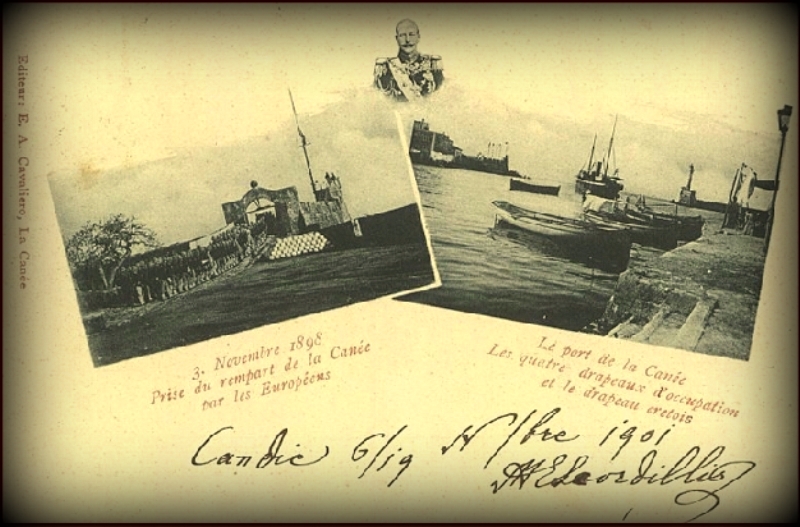 Editeur: E. A. Cavaliero, La Canée
3. Novembre 1898
Prise du rempart de la Canée
par les Européens
Le port de la Canée
Les quatre drapeaux d'occupation
et le drapeau crétois
Candie 6/19 /bre 1901